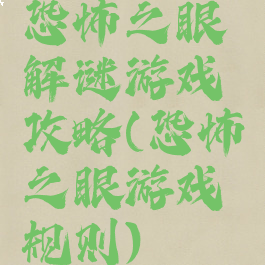 恐怖之眼
解谜游戏
攻略(恐怖
之眼游戏
规则)